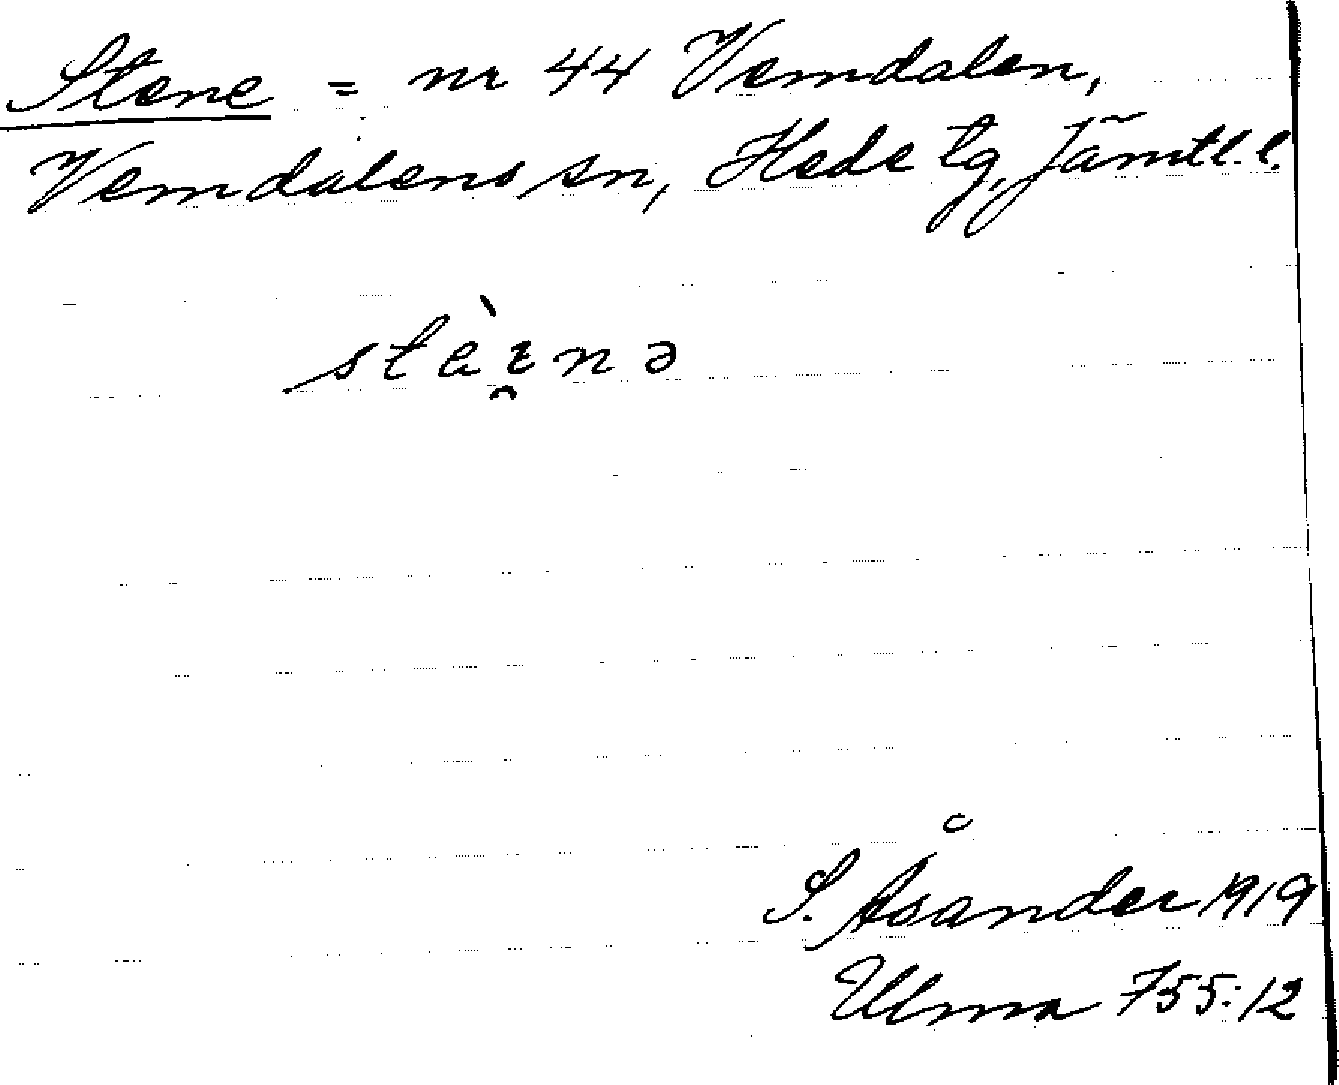 Stene = nr 44 Vemdalen,
Vemdalens sn, Hede tg, Jämtl. l.
S. Åsander 1919
Ulma 755:12